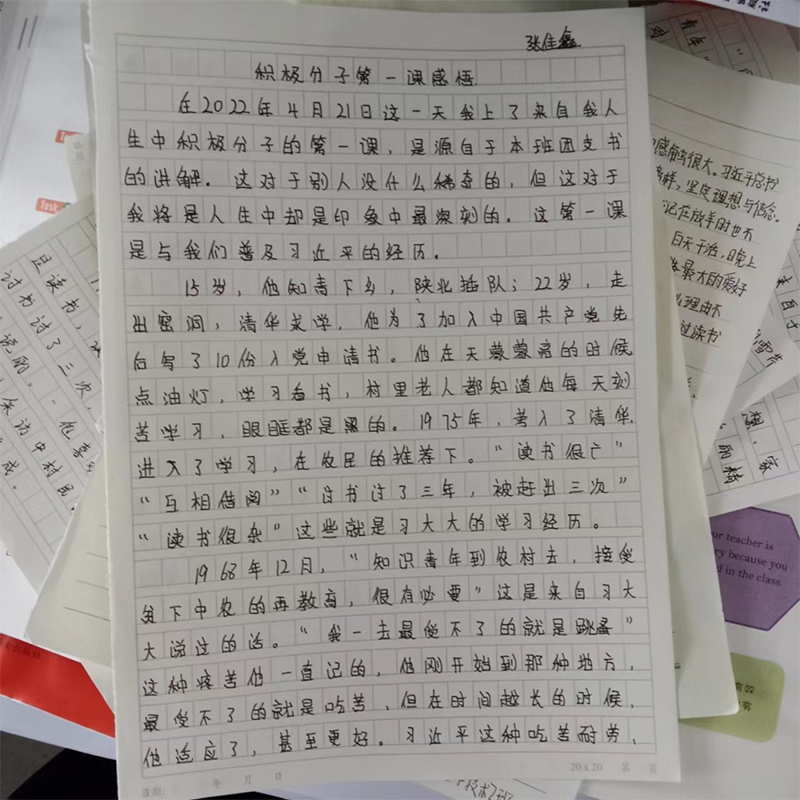 张佳鑫
积极分子第一课感悟
在2022年4月21日这一天我上了来自我人
生中积极分子的第一课，是源自于本班团支书
的讲解．这对于别人没什么稀奇的，但这对于
我将是人生中却是印象中最深刻的．这第一课
是与我们普及习近平的经历．
15岁，他知青下乡，陕北插队；22岁，走
出窑洞，清华求学，他为了加入中国共产党先
后写了10份入党申请书。他在天蒙蒙亮的时候
点油灯，学习看书，村里老人都知道他每天刻
苦学习，眼眶都是黑的．1975年，考入了清华．
进入了学习，在农民的推荐下。“读书很广”
“互相借阅”“讨书讨了三年，被赶出三次”
“读书很杂”这些就是习大大的学习经历。
1968年12月，“知识青年到农村去，接受
贫下中农的再教育，很有必要”这是来自习大
大说过的话。“我一去最受不了的就是跳蚤”
这种疼苦他一直记的，他刚开始到那种地方，
最受不了的就是吃苦，但在时间越长的时候，
他适应了，甚至更好。习近平这种吃苦耐劳，
日期： 年 月 日
20 x 20 第 页
感触很大．习近平总书
榜样，坚定理想与信念．
记在放羊时也不
白天干活，晚上
最大的爱好
理由不
过读书
且读书，
讨书讨了三次，
采访中村民
成。
家
ur teacher is
ry because you
d in the class.
Task
Task